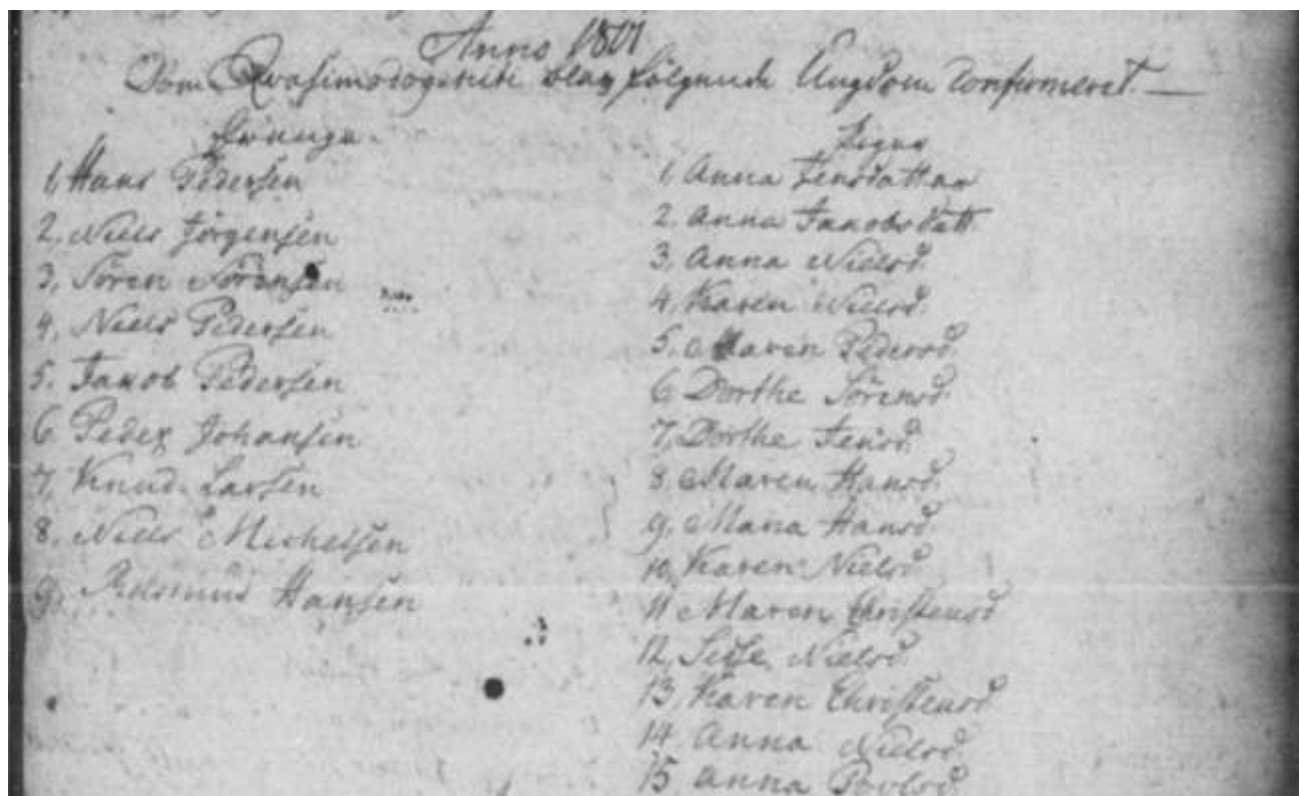 Anno 1801
Dom Qvasimodogeniti blev følgende Ungdom Confirmeret. —
Drenge
1, Hans Pedersen
2, Niels Jörgensen
3, Sören Sörensen
4, Niels Pedersen
5. Jakob Pedersen
6 Peder Johansen
7, Knud Larsen
8, Niels Michelsen
9, Rasmus Hansen
Piger
1, Anna Jensdatter
2. Anna Jakobsdatt
3, Anna Nielsd.
4, Karen Nielsd.
5, Maren Pedersd.
6 Dorthe Sörensd.
7, Dorthe Jensd.
8, Maren Hansd.
9, Maria Hansd.
10, Karen Nielsd.
11 Maren Christensd
12, Nielsd.
13, Karen Christensd
14, Anna Nielsd.
15, Anna Povlsd.